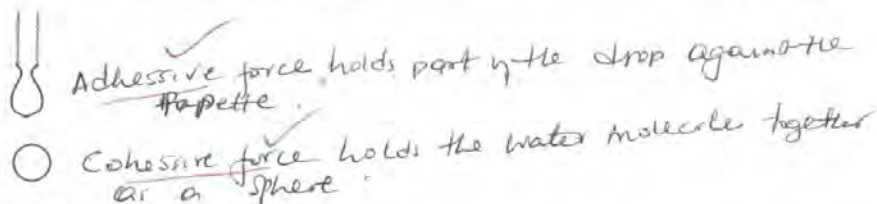 Adhessive force holds part of the drop against the
Papette.
Cohessive force holds the water molecule together
as a sphere.